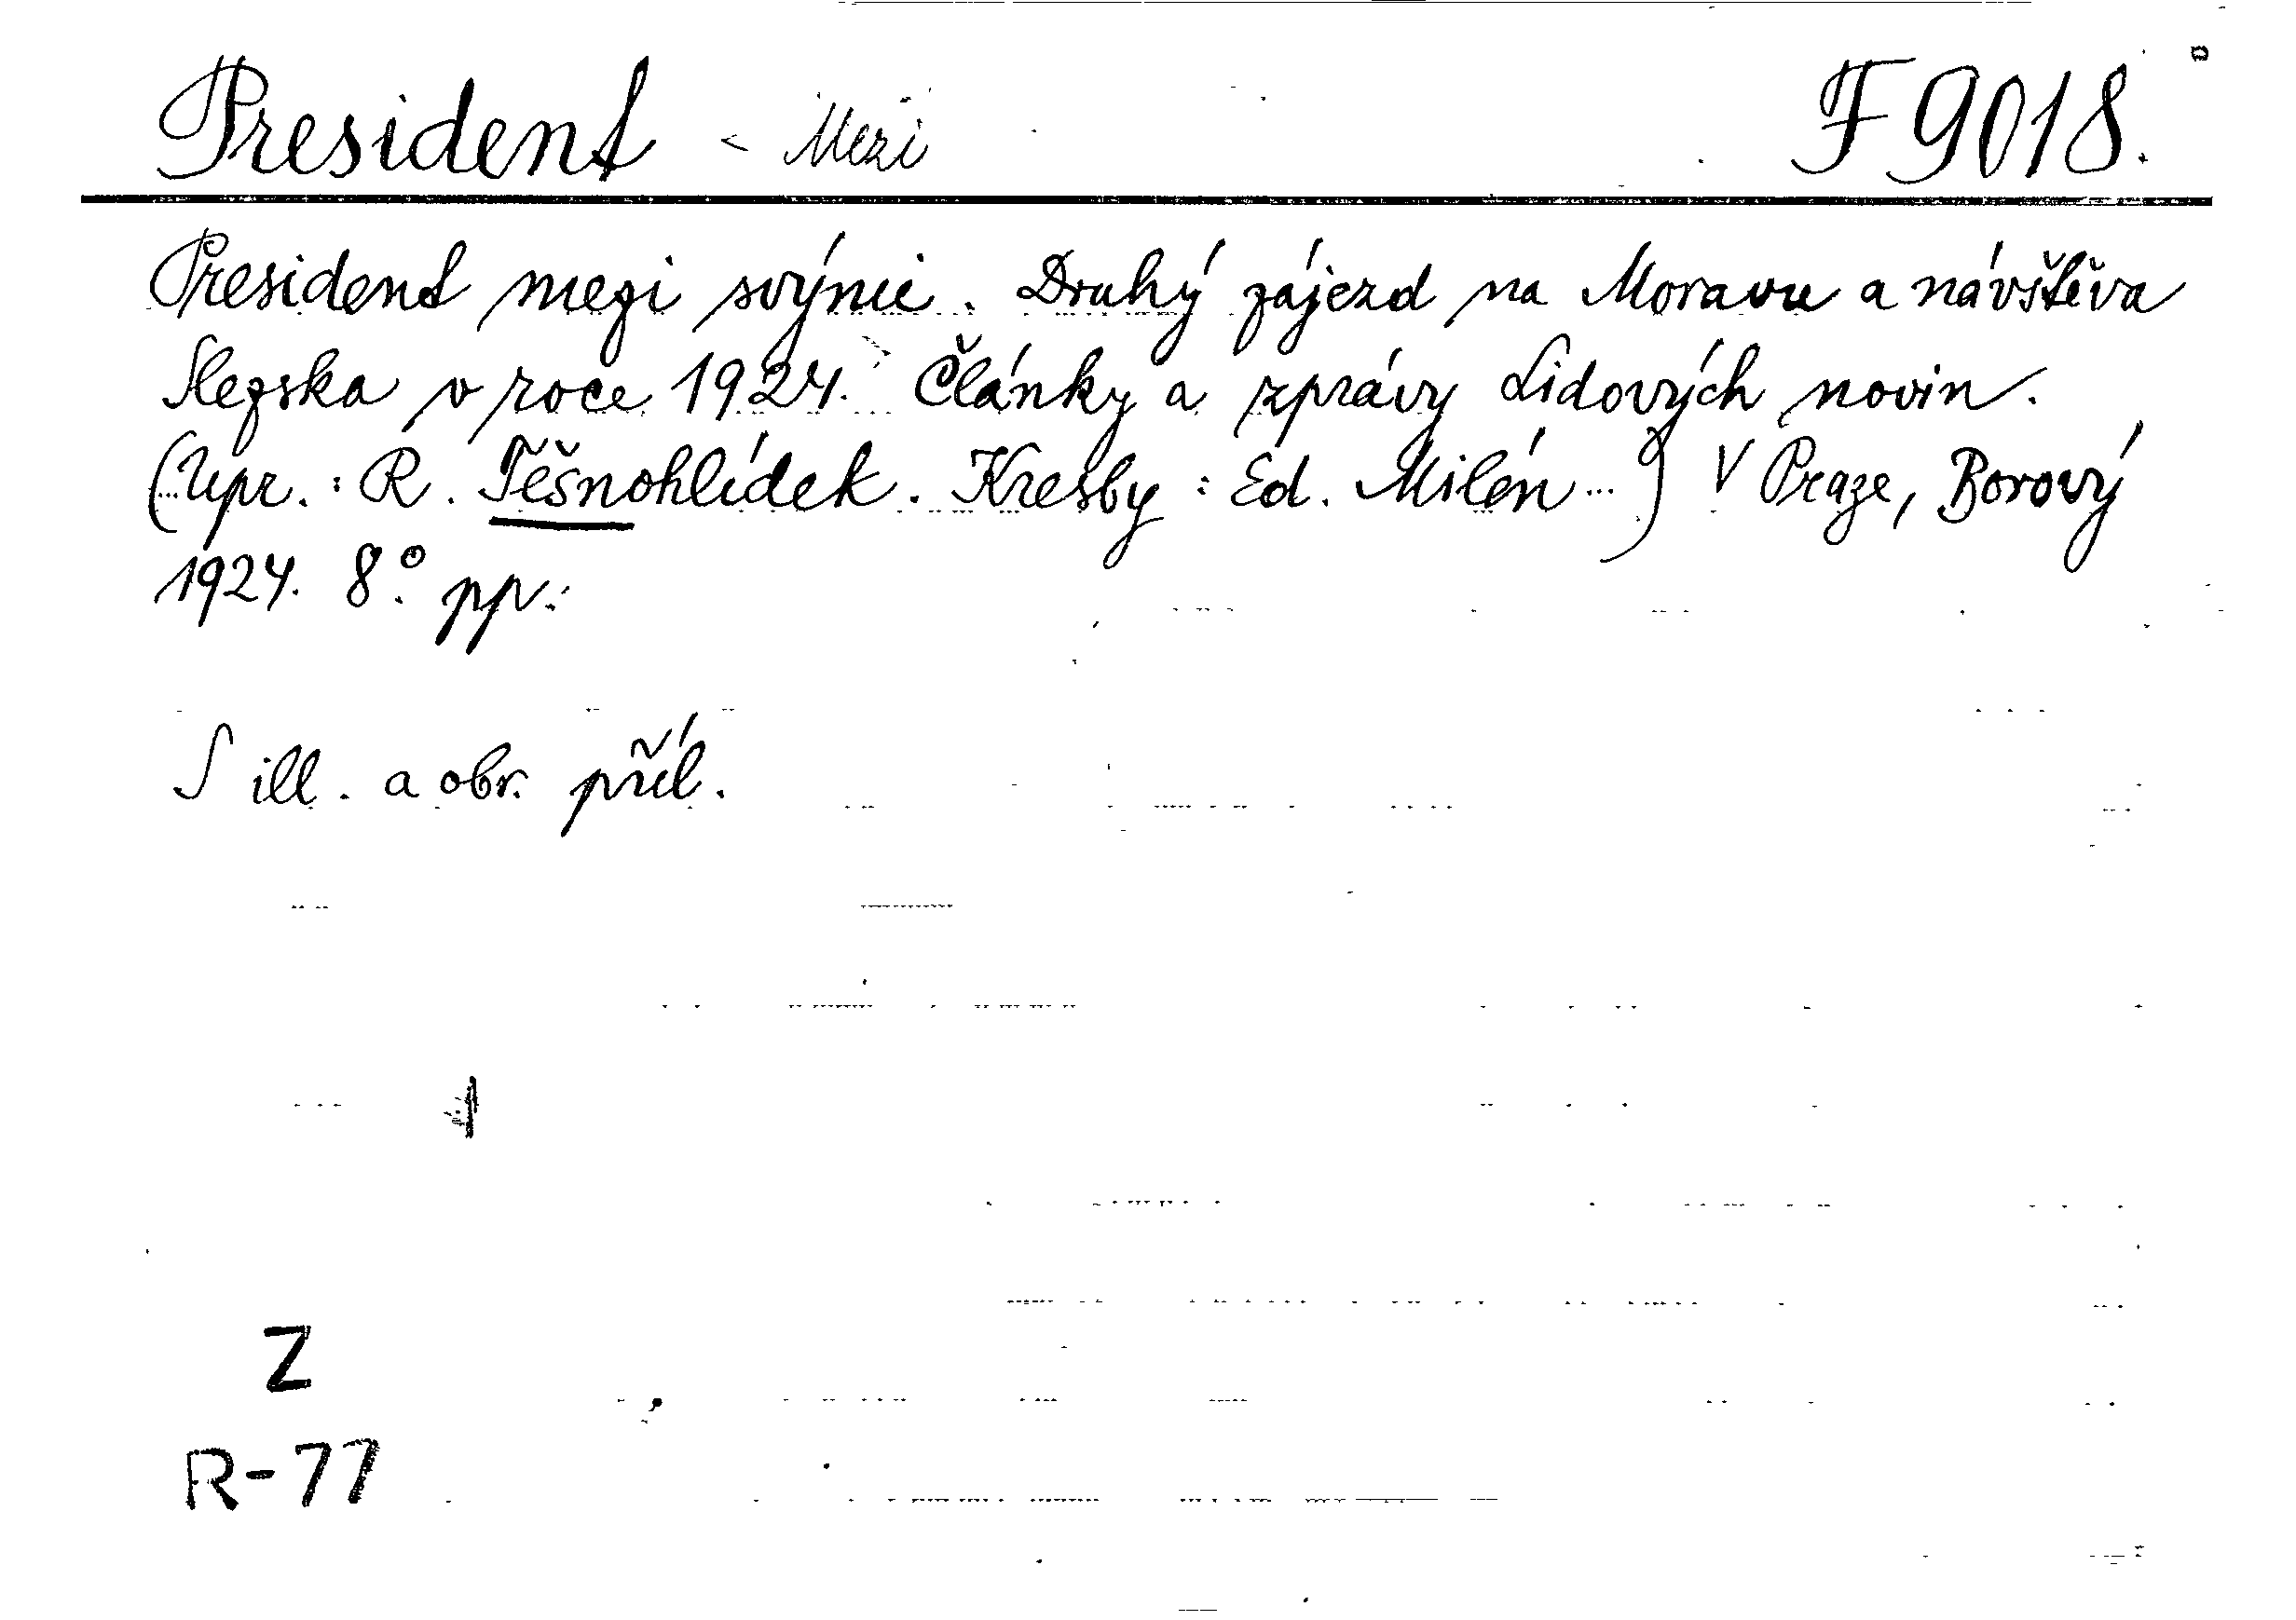 President - Mezi F 9018.
President mezi svými. Druhý zájezd na Moravu a návštěva
Slezska v roce 1924. Články a zprávy Lidových novin.
(Upr.: R. Těšnohlídek. Kresby: Ed. Milén...) V Praze, Borový
1924. 8°. pp.
S ill. a obr. příl.
Z
R-77